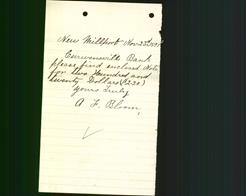 New Millport Nov 23
Curwensville Bank
please find enclosed Note
for two Hundred and
twenty Dollars ($220)
Yours truly
A. F. Bloom